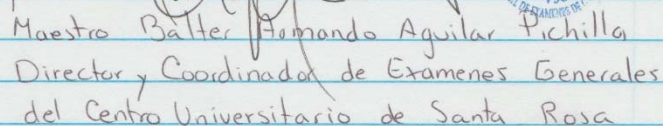 Maestro Balter Armando Aguilar Pichilla
Director y Coordinador de Examenes Generales
del Centro Universitario de Santa Rosa